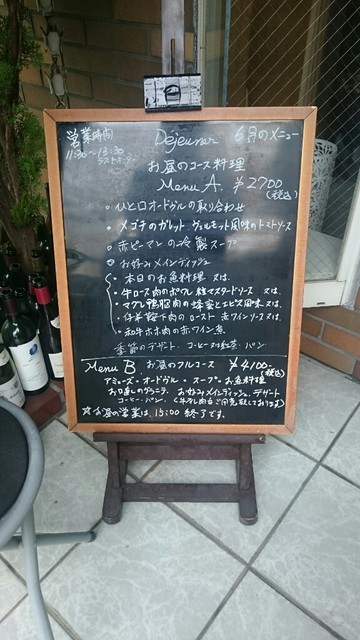 営業時間
11:30～13:30
ラストオーダー
Déjeuner 6月のメニュー
お昼のコース料理
Menu A. ¥2700
(税込)
・ひと口オードヴルの取り合わせ
・メゴチのガレット ヴェルモット風味のトマトソース
・赤ピーマンの冷製スープ
・お好みメインディッシュ
本日のお魚料理 又は、
・牛ロース肉のポワレ 粒マスタードソース 又は、
・マグレ鴨胸肉の蜂蜜とエピス風味 又は、
・仔羊 肉のロースト 赤ワインソース 又は、
・和牛ホホ肉の赤ワイン煮
季節のデザート、コーヒー又は紅茶、パン
Menu B お昼のフルコース ¥4100-
(税込)
アミューズ・オードヴル・スープ・お魚料理
お口直しのグラニテ、お好みメインディッシュ、デザート
コーヒー、パン、
☆お昼の営業は、15:00 終了です。